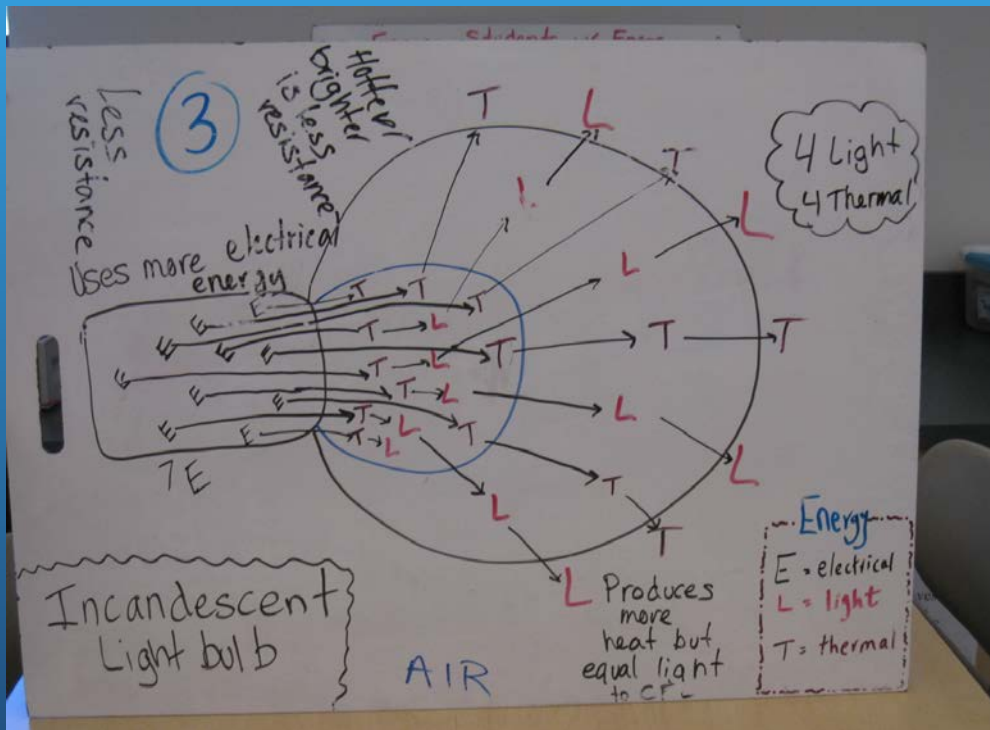 Energy Students
Less
resistance
3
Hotter
brighter
is less
resistance
Uses more electrical
energy
T
L
T
L
4 Light
4 Thermal
L
L
T
T
T
E
T
L
E
T
L
E
E
E
T
T
T
E
T
L
E
T
L
L
E
E
T
L
T
E
T
L
L
T
L
T
7E
L
Incandescent
Light bulb
AIR
Produces
more
heat but
equal light
to CFL
Energy
E = electrical
L = light
T = thermal